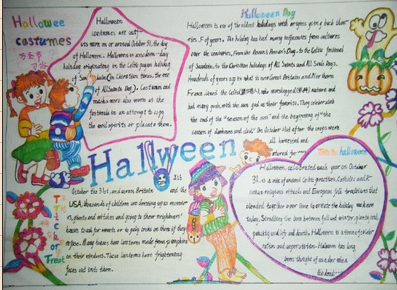 Hallowee
costumes
万圣节
Halloween
costumes, are outf-
its worn on or around October 31, the day
of Halloween. Halloween is a modern-day
holiday originating in the Celtic pagan holiday
of Samhain (in Christian times, the eve
of All Saints Day). Costumes and
masks were also worn at the
festivals in an attempt to copy
the evil spirits or placate them.
Halloween Day
Halloween is one of the oldest holidays with origins going back
of years. The holiday has had many influences from cultures
over the centuries. From the Roman's Pomona's Day, to the Celtic festival
of Samhain, to the Christian holidays of All Saints and All Souls days.
Hundreds of years ago in what is now Great Britain and Northern
France, lived the Celts. worshipped nature and
had many gods, with the sun god as their favorite. They celebrated
the end of the "season of the sun" and the beginning of "the
season of darkness and cold" On October 31st after the crops were
all harvested and
stored for
Halloween
Trick
or
Treat
October the 31st, and across Britain and the
USA, thousands of children are dressing up as
ghosts and witches and going to their neighbours'
houses to ask for sweets or to play tricks on them if they
refuse. Many houses have lanterns made from pumpkins
on their windows. These lanterns have frightening
faces cut into them.
halloween
Halloween, celebrated each year on October
31, is a mix of ancient Celtic practices, Catholic and
religious rituals and European folk traditions that
blended together over time to create the holiday we know
today. Straddling the line between fall and winter, plenty and
paucity and life and death, Halloween is a time of celebr-
ration and superstition. Halloween has long
been thought of as a day when
the dead